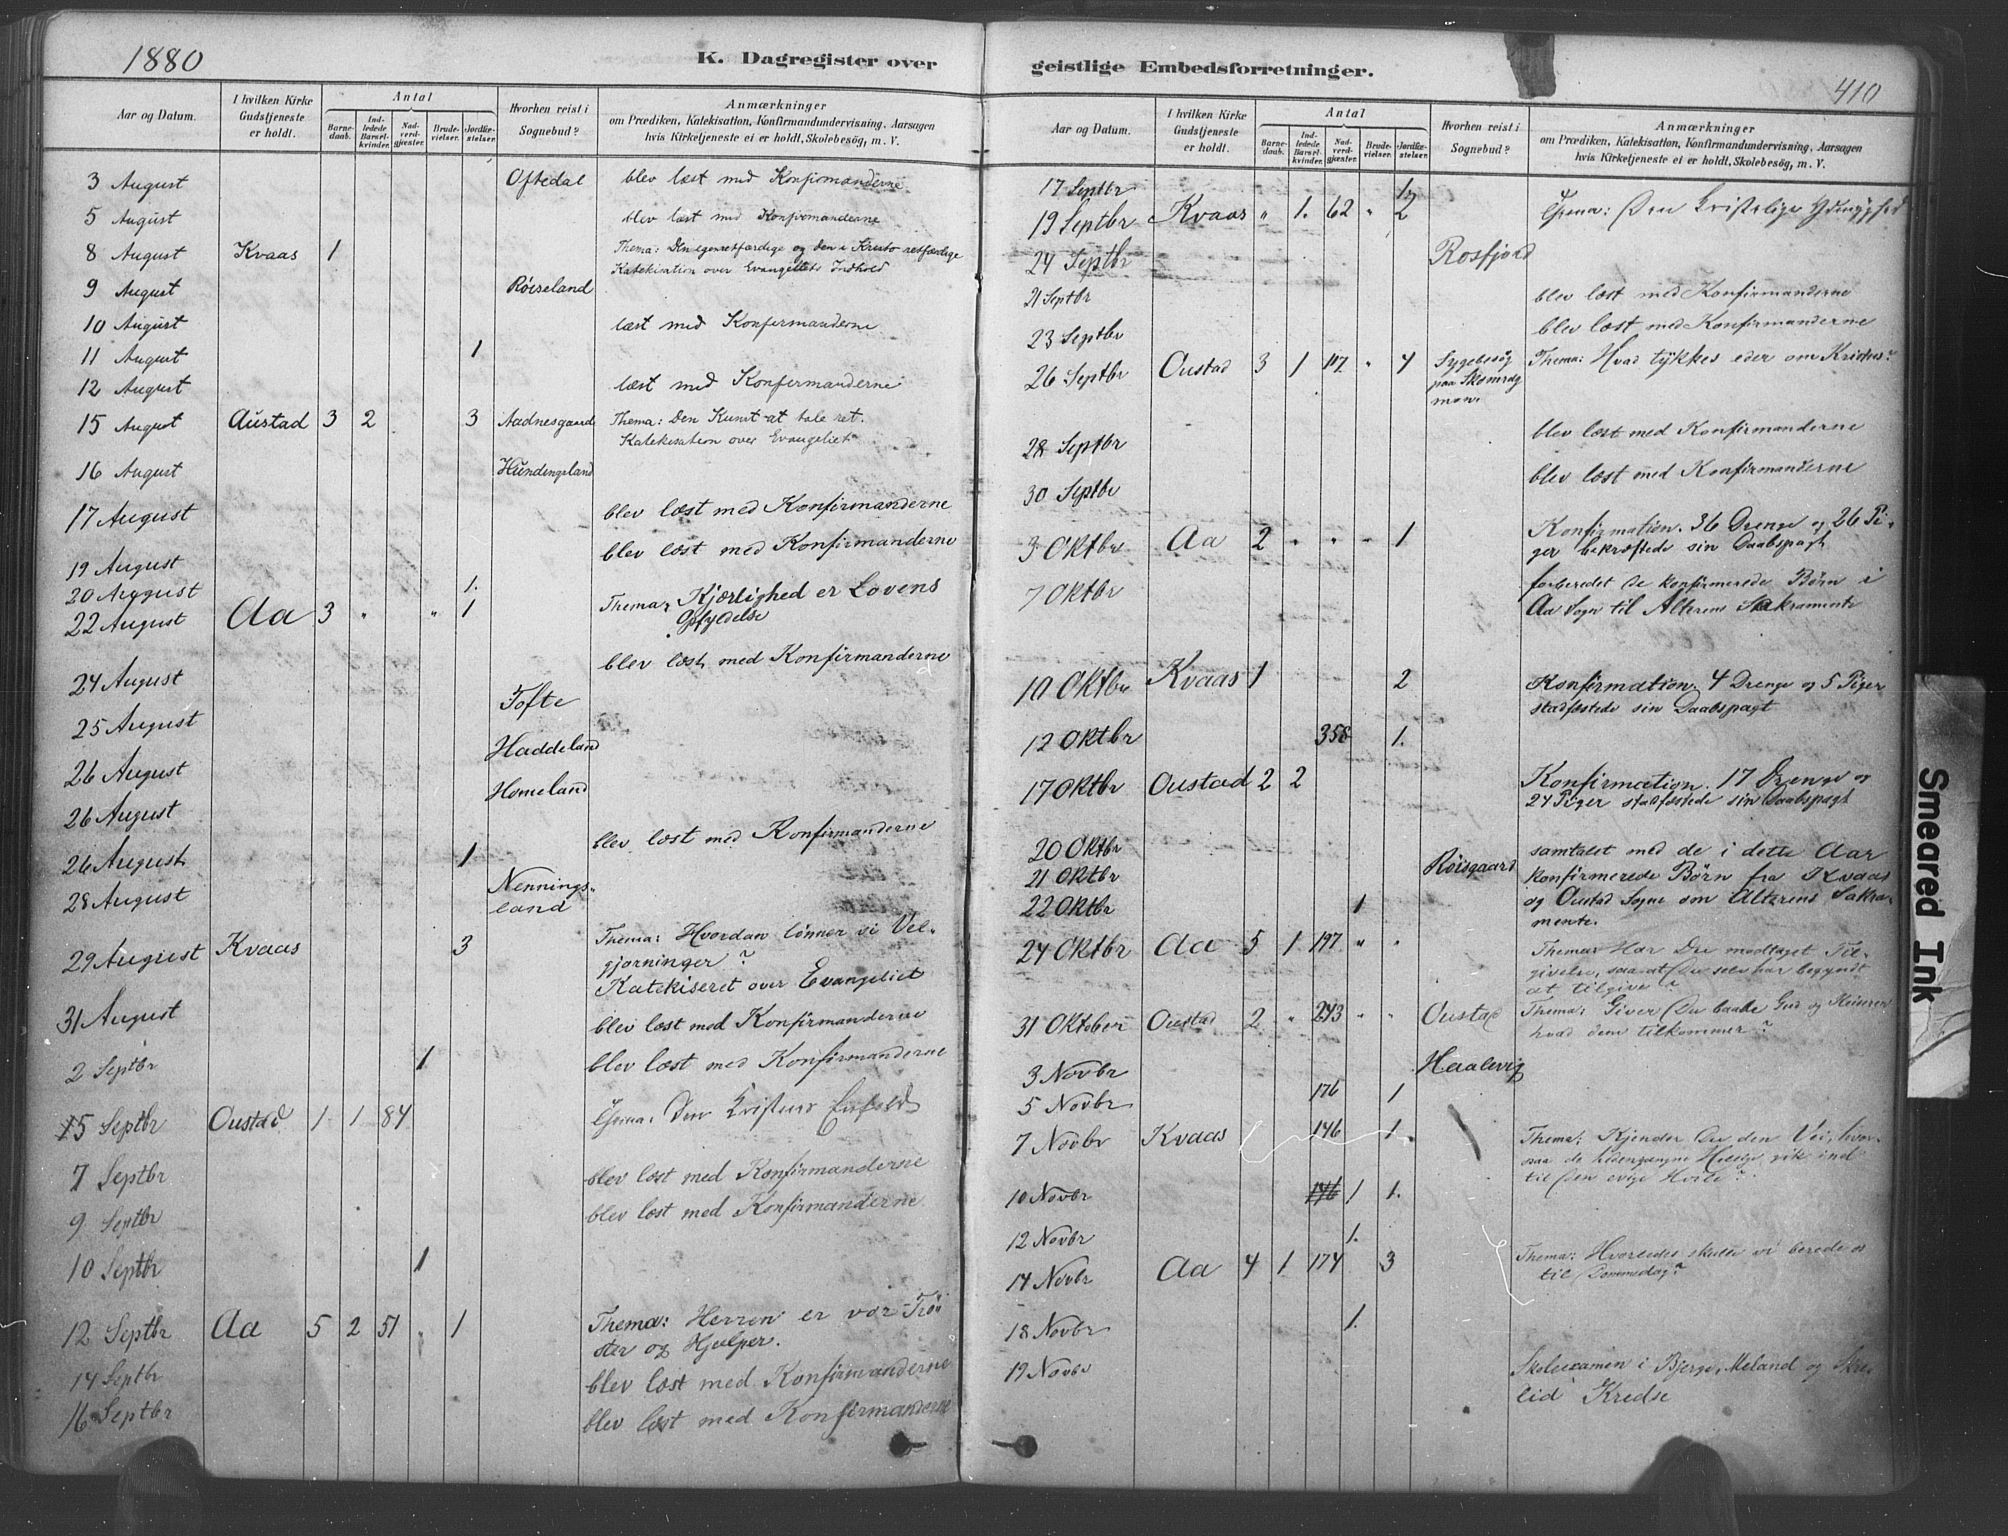 1880
K. Dagregister over
Aar og Datum. I hvilken Kirke Gudstjeneste er holdt. Antal Barnedaab. Indledede Barselkvinder. Nadverdgjæster. Brudevielser. Jordfæstelser. Hvorhen reist i Sognebud? Anmærkninger om Prædiken, Katekisation, Konfirmandundervisning, Aarsagen hvis Kirketjeneste ei er holdt, Skolebesög, m. V.
3 August Oftedal blev læst med Konfirmanderne
5 August blev læst med Konfirmanderne
8 August Kvaas 1 Thema: Den egenretfærdige og den i Kristo retfærdige
Katekisation over Evangeliets Indhold
9 August Röiseland
10 August læst med Konfirmanderne
11 August 1
12 August læst med Konfirmanderne
15 August Austad 3 2 3 Aadnesgaard Thema: Den Kunst at tale ret.
Katekisation over Evangeliet
16 August Hundingsland
17 August blev læst med Konfirmanderne
19 August blev læst med Konfirmanderne
20 August 1.
22 August Aa 3 " " 1 Thema: Kjærlighed er Lovens
Opfyldelse
24 August blev læst med Konfirmanderne
25 August Tofte
26 August Haddeland
26 August Homeland
26 August 1 blev læst med Konfirmanderne
28 August Nennings-
land
29 August Kvaas 3 Thema: Hvordan lönner vi Vel-
gjörninger?
Katekiseret over Evangeliet
31 August blev læst med Konfirmanderne
2 Septbr 1 blev læst med Konfirmanderne
5 Septbr Oustad 1 1 84 Thema: Den Kristens
7 Septbr blev læst med Konfirmanderne
9 Septbr blev læst med Konfirmanderne
10 Septbr 1
12 Septbr Aa 5 2 51 1 Thema: Herren er vor Trö-
ster og Hjælper.
14 Septbr blev læst med Konfirmanderne
16 Septbr blev læst med Konfirmanderne
geistlige Embedsforretninger.
410
Aar og Datum. I hvilken Kirke Gudstjeneste er holdt. Antal Barnedaab. Indledede Barselkvinder. Nadverdgjæster. Brudevielser. Jordfæstelser. Hvorhen reist i Sognebud? Anmærkninger om Prædiken, Katekisation, Konfirmandundervisning, Aarsagen hvis Kirketjeneste ei er holdt, Skolebesög, m. V.
17 Septbr
19 Septbr Kvaas " 1. 62 " 2 Thema: Den kristelige Ydmyghed
24 Septbr Rosfjord
21 Septbr blev læst med Konfirmanderne
23 Septbr blev læst med Konfirmanderne
26 Septbr Oustad 3 1 117 " 4 Sygebesög
paa Thema: Hvad tykkes eder om Kristus?
28 Septbr blev læst med Konfirmanderne
30 Septbr blev læst med Konfirmanderne
3 Oktbr Aa 2 " " " 1 Konfirmation. 36 Drenge og 26 Pi-
ger bekræftede sin Daabspagt
7 Oktbr forberedet de konfirmerede Börn i
Aa Sogn til Alterens Sakramente
10 Oktbr Kvaas 1 2 Konfirmation. 4 Drenge og 5 Piger
stadfæstede sin Daabspagt
12 Oktbr 358 1.
17 Oktbr Oustad 2 2 Konfirmation. 17 Drenge og
24 Piger stadfæstede sin Daabspagt
20 Oktbr samtalet med de i dette Aar
21 Oktbr Röisgaard konfirmerede Börn fra Kvaas
22 Oktbr 1 og Oustad Sogne om Alterens Sakra-
mente.
24 Oktbr Aa 5 1 197 " " Thema: Har Du modtaget Til-
givelse, saa at Du selv har begyndt
at tilgive?
31 Oktober Oustad 2 " 243 " " Oustad Thema: Giver Du baade Gud og Keiseren
hvad dem tilkommer?
3 Novbr Haalevig
5 Novbr 176 1
7 Novbr Kvaas 146 1. Thema: Kjender Du den Vei, hvor-
paa de hedengangne Hellige gik ind
til den evige Hvile?
10 Novbr 146 1 1.
12 Novbr 1.
14 Novbr Aa 4 1 174 3 Thema: Hvorledes skulle vi berede os
til Dommedag?
18 Novbr 1.
19 Novbr Skoleexamen i Bjerge, Meland og Skre-
lid Kredse
Smeared Ink